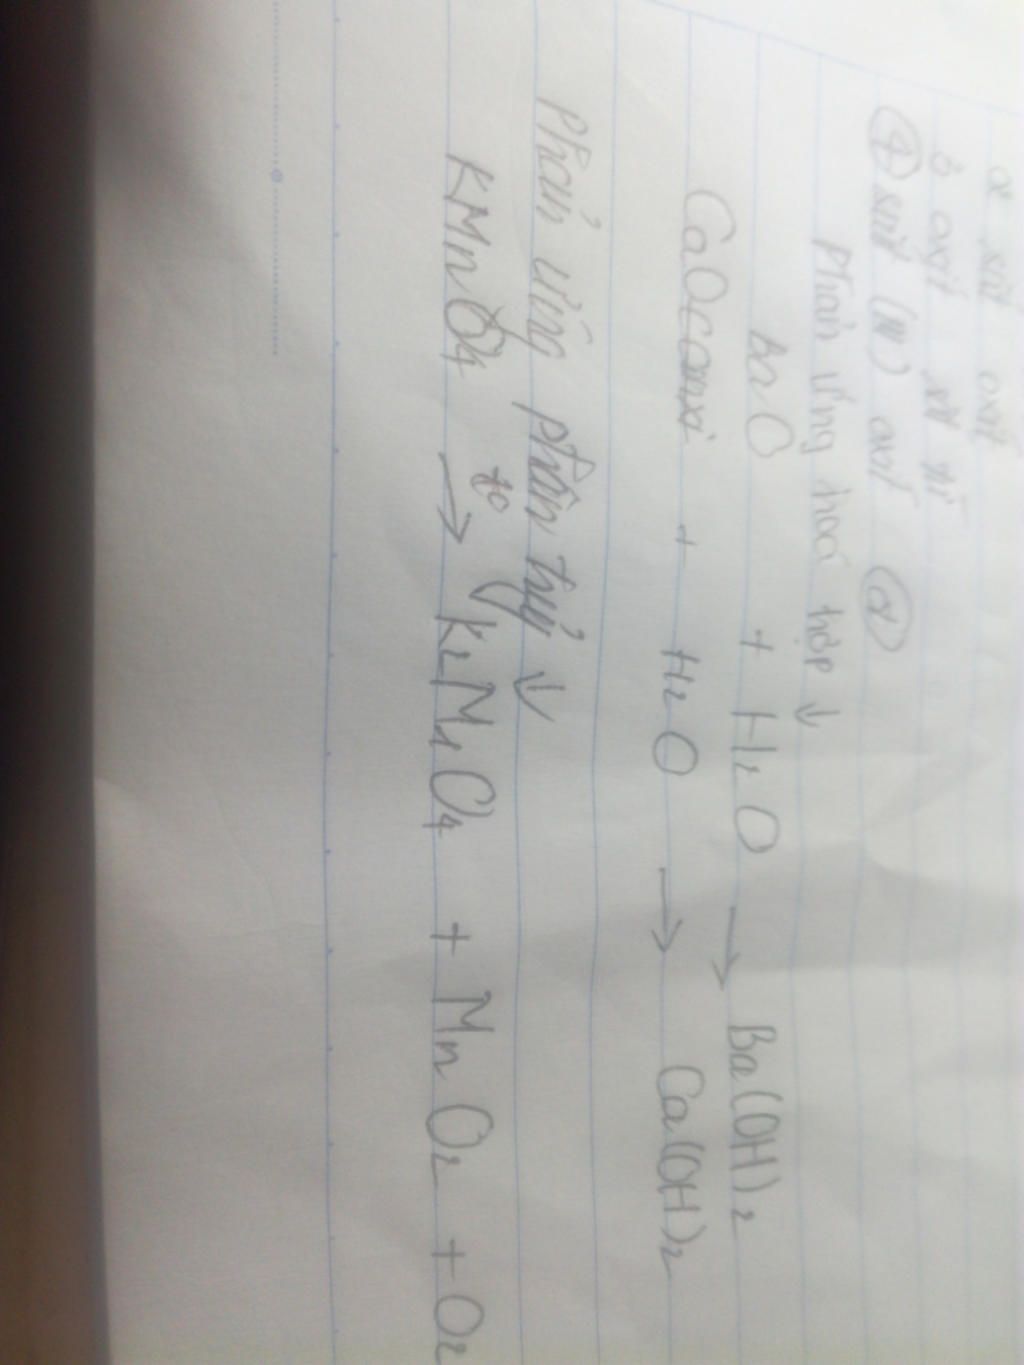 α sắt oxit
3 oxit sắt từ
④ sắt (III) oxit ④
Phản ứng hoá hợp ↓
BaO + H₂O → Ba(OH)₂
CaO + H₂O → Ca(OH)₂
Phản ứng phân huỷ ↓
KMnO₄ →to K₂MnO₄ + MnO₂ + O₂